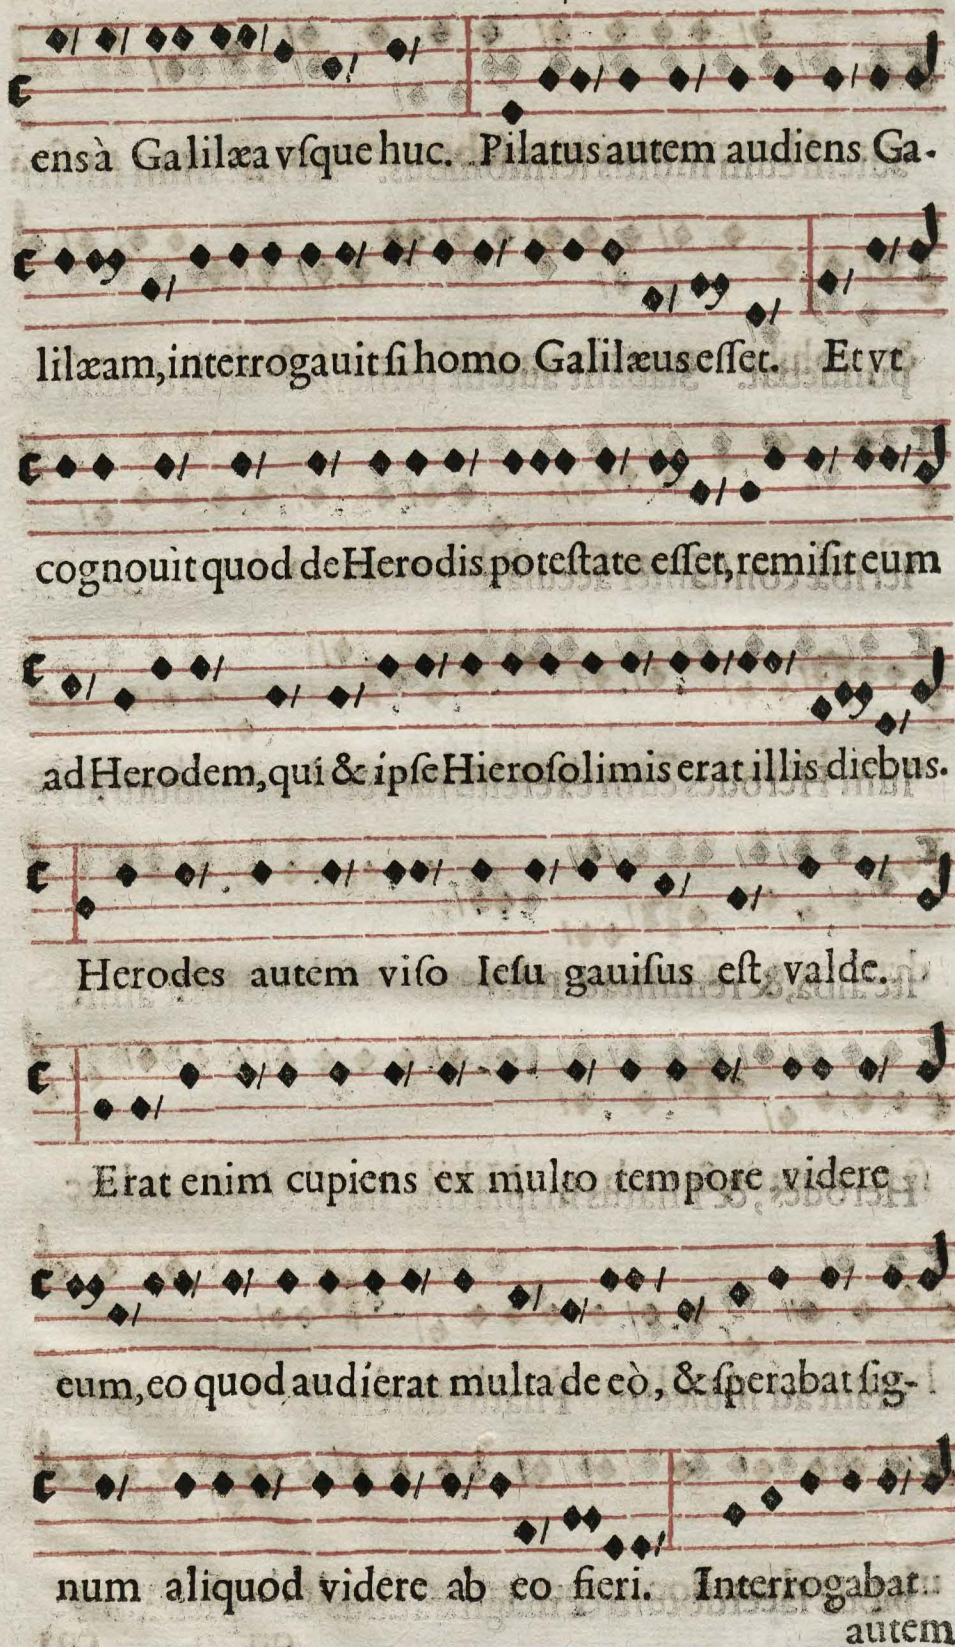 ens à Galilæa vſque huc. Pilatus autem audiens Ga-
lilæam, interrogauit ſi homo Galilæus eſſet. Et vt
cognouit quod de Herodis poteſtate eſſet, remiſit eum
ad Herodem, qui & ipſe Hieroſolimis erat illis diebus.
Herodes autem viſo Ieſu gauiſus eſt valde.
Erat enim cupiens ex multo tempore videre
eum, eo quod audierat multa de eò, & ſperabat ſig-
num aliquod videre ab eo fieri. Interrogabat
autem